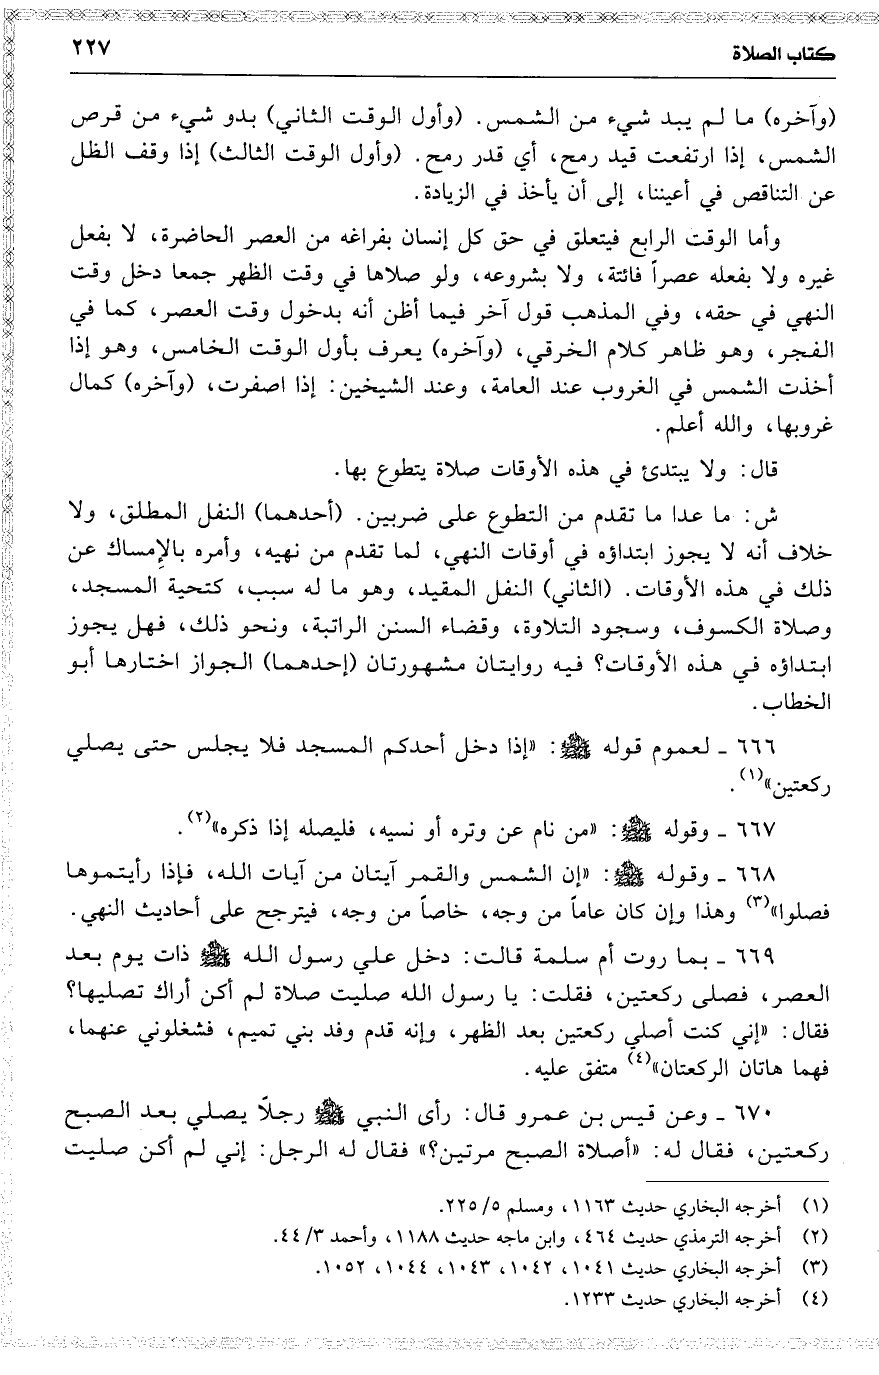 كتاب الصلاة ٢٢٧
(وآخره) ما لم يبد شيء من الشمس. (وأول الوقت الثاني) بدو شيء من قرص
الشمس، إذا ارتفعت قيد رمح، أي قدر رمح. (وأول الوقت الثالث) إذا وقف الظل
عن التناقص في أعيننا، إلى أن يأخذ في الزيادة.
وأما الوقت الرابع فيتعلق في حق كل إنسان بفراغه من العصر الحاضرة، لا بفعل
غيره ولا بفعله عصراً فائتة، ولا بشروعه، ولو صلاها في وقت الظهر جمعا دخل وقت
النهي في حقه، وفي المذهب قول آخر فيما أظن أنه بدخول وقت العصر، كما في
الفجر، وهو ظاهر كلام الخرقي، (وآخره) يعرف بأول الوقت الخامس، وهو إذا
أخذت الشمس في الغروب عند العامة، وعند الشيخين: إذا اصفرت، (وآخره) كمال
غروبها، والله أعلم.
قال: ولا يبتدئ في هذه الأوقات صلاة يتطوع بها.
ش: ما عدا ما تقدم من التطوع على ضربين. (أحدهما) النفل المطلق، ولا
خلاف أنه لا يجوز ابتداؤه في أوقات النهي، لما تقدم من نهيه، وأمره بالإمساك عن
ذلك في هذه الأوقات. (الثاني) النفل المقيد، وهو ما له سبب، كتحية المسجد،
وصلاة الكسوف، وسجود التلاوة، وقضاء السنن الراتبة، ونحو ذلك، فهل يجوز
ابتداؤه في هذه الأوقات؟ فيه روايتان مشهورتان (إحدهما) الجواز اختارها أبو
الخطاب.
٦٦٦ ـ لعموم قوله ﷺ: «إذا دخل أحدكم المسجد فلا يجلس حتى يصلي
ركعتين»(١).
٦٦٧ ـ وقوله ﷺ: «من نام عن وتره أو نسيه، فليصله إذا ذكره»(٢).
٦٦٨ ـ وقوله ﷺ: «إن الشمس والقمر آيتان من آيات الله، فإذا رأيتموها
فصلوا»(٣) وهذا وإن كان عاماً من وجه، خاصاً من وجه، فيترجح على أحاديث النهي.
٦٦٩ ـ بما روت أم سلمة قالت: دخل علي رسول الله ﷺ ذات يوم بعد
العصر، فصلى ركعتين، فقلت: يا رسول الله صليت صلاة لم أكن أراك تصليها؟
فقال: «إني كنت أصلي ركعتين بعد الظهر، وإنه قدم وفد بني تميم، فشغلوني عنهما،
فهما هاتان الركعتان»(٤) متفق عليه.
٦٧٠ ـ وعن قيس بن عمرو قال: رأى النبي ﷺ رجلاً يصلي بعد الصبح
ركعتين، فقال له: «أصلاة الصبح مرتين؟» فقال له الرجل: إني لم أكن صليت
(١) أخرجه البخاري حديث ١١٦٣، ومسلم ٥/ ٢٢٥.
(٢) أخرجه الترمذي حديث ٤٦٤، وابن ماجه حديث ١١٨٨، وأحمد ٣/ ٤٤.
(٣) أخرجه البخاري حديث ١٠٤١، ١٠٤٢، ١٠٤٣، ١٠٤٤، ١٠٥٢.
(٤) أخرجه البخاري حديث ١٢٣٣.